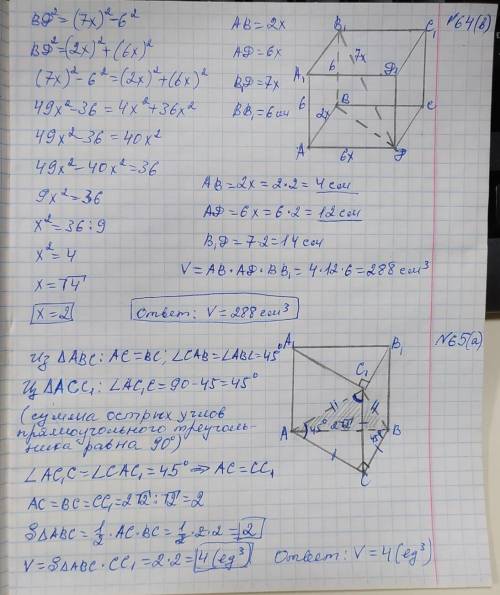 №64(в)
BD²=(7x)²-6²
BD²=(2x)²+(6x)²
(7x)²-6²=(2x)²+(6x)²
49x²-36=4x²+36x²
49x²-36=40x²
49x²-40x²=36
9x²=36
x²=36:9
x²=4
x=√4
x=2
AB=2x
AD=6x
B₁D=7x
BB₁=6см
B₁
C₁
A₁
D₁
6
7x
6
B
C
2x
A
6x
D
AB=2x=2·2=4см
AD=6x=6·2=12см
B₁D=7·2=14см
V=AB·AD·BB₁=4·12·6=288см³
Ответ: V=288см³
№65(а)
Из ΔABC: AC=BC; ∠CAB=∠ABC=45°
Из ΔACC₁: ∠AC₁C=90-45=45°
(сумма острых углов
прямоугольного треуголь-
ника равна 90°)
∠AC₁C=∠CAC₁=45° ⇒ AC=CC₁
AC=BC=CC₁=2√2:√2=2
SΔABC=½·AC·BC=½·2·2=2
V=SΔABC·CC₁=2·2=4(ед³)
Ответ: V=4(ед³)
A₁
B₁
C₁
A
45°
2√2
B
45°
C